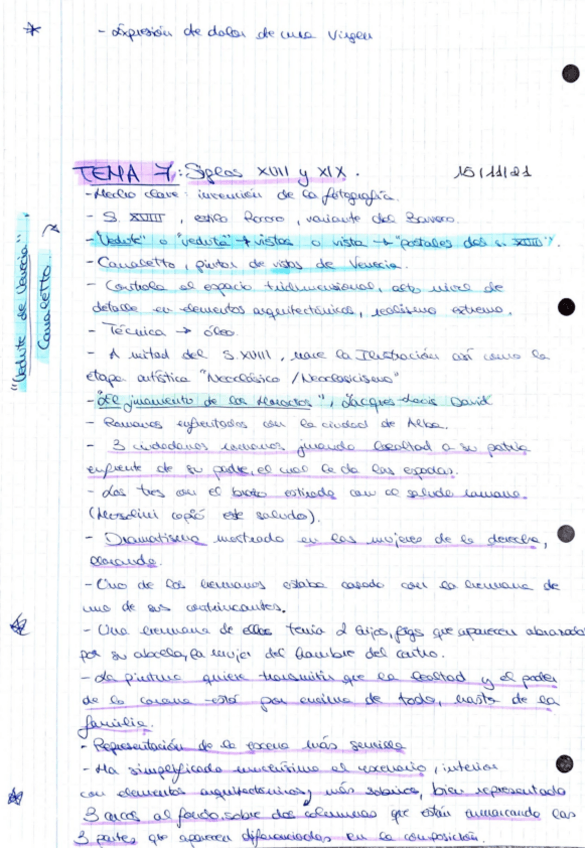 - Expresión de dolor de una Virgen
TEMA 7: Siglos XVIII y XIX. 15/11/21
- Hecho clave: invención de la fotografía.
- S. XVIII, estilo Rococó, variante del Barroco.
- "Vedute" o "veduta" → vistas o vista → "postales del s. XVIII".
- Canaletto, pintor de vistas de Venecia.
- Controla el espacio tridimensional, alto nivel de
detalle en elementos arquitectónicos, realismo extremo.
- Técnica → óleo
- A mitad del S. XVIII, nace la Ilustración así como la
etapa artística "Neoclásico / Neoclasicismo"
- "El juramento de los Horacios", Jacques-Louis David
- Romanos enfrentados con la ciudad de Alba.
- 3 ciudadanos romanos jurando lealtad a su patria
enfrente de su padre, el cual le da las espadas.
- Los tres con el brazo estirado con el saludo romano.
(Mussolini copió este saludo).
- Dramatismo mostrado en las mujeres de la derecha,
llorando.
- Uno de los hermanos estaba casado con la hermana de
uno de sus contrincantes.
- Una hermana de ellos tenía 2 hijos, que aparecen abrazados
por su abuela, la mujer del hombre del centro.
- La pintura quiere transmitir que la lealtad y el poder
de la corona está por encima de todo, hasta de la
familia.
- Representación de la escena más sencilla
- Ha simplificado muchísimo el escenario, interior
con elementos arquitectónicos y más sobrios, bien representado
3 arcos al fondo, sobre dos columnas que están enmarcando las
3 partes que aparecen diferenciadas en la composición.
"Vedute de Venecia",
Canaletto.